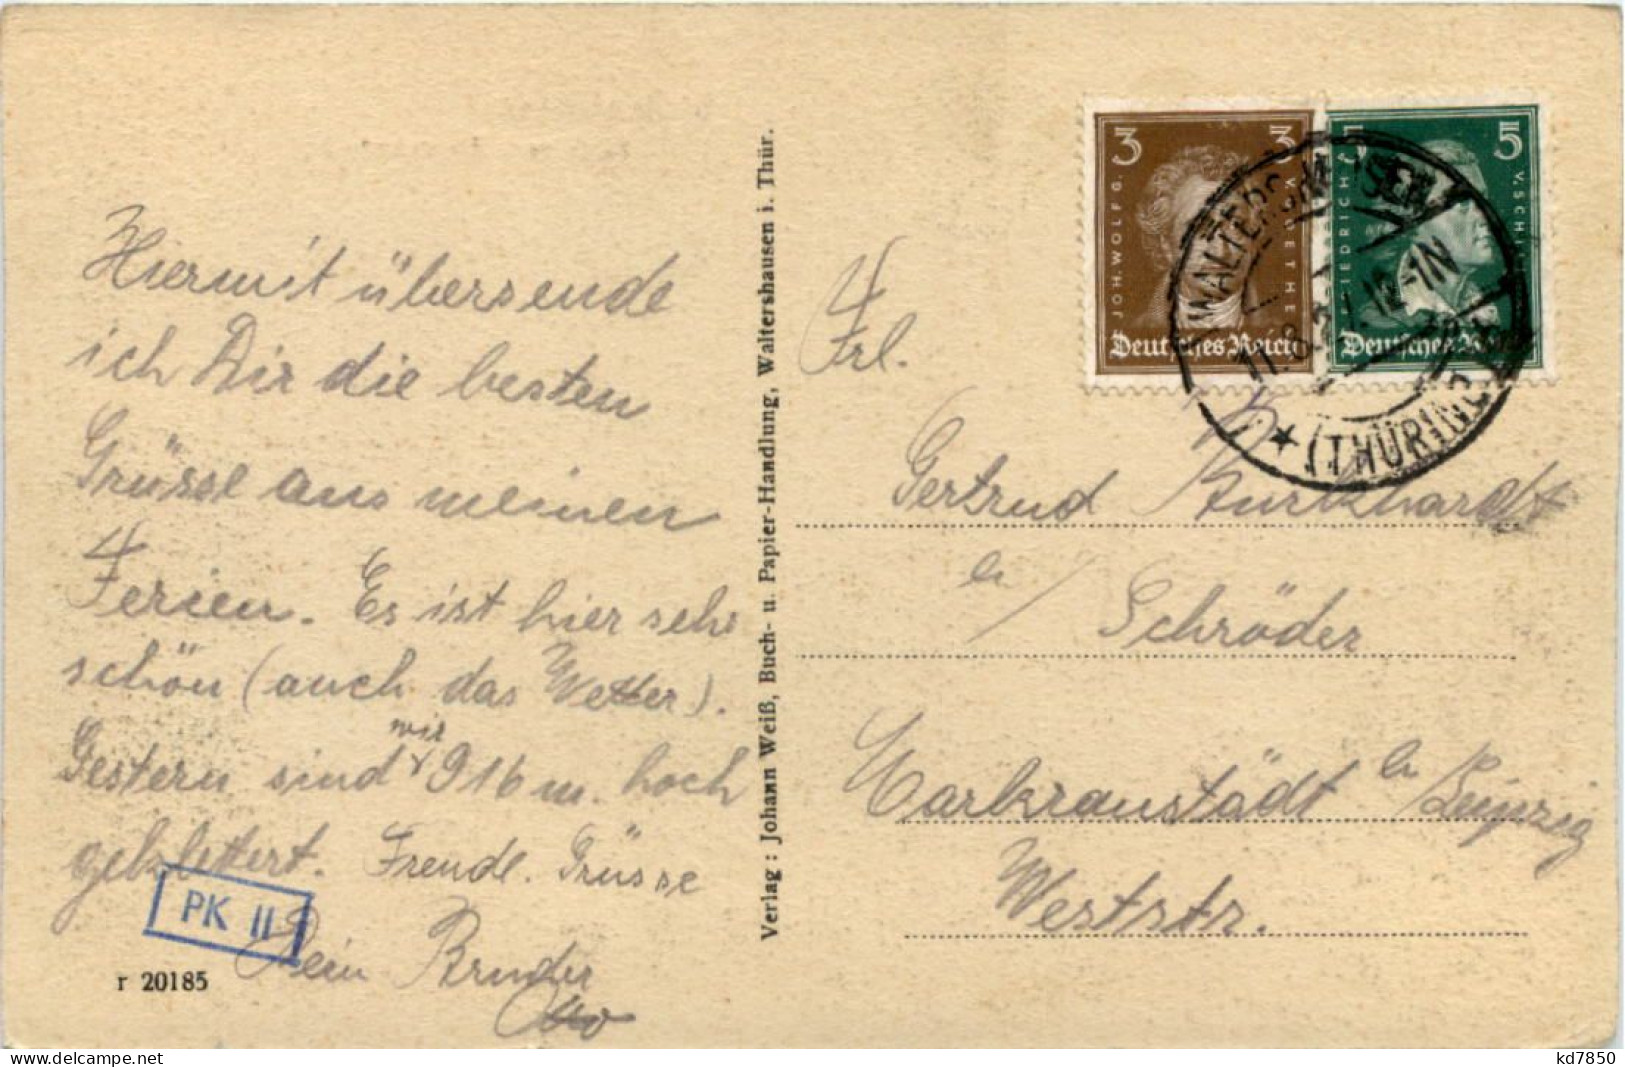 Hiermit übersende
ich Dir die besten
Grüsse aus meinen
Ferien. Es ist hier sehr
schön (auch das Wetter).
Gestern sind wir 916 m. hoch
geklettert. Freudl. Grüsse
Dein Bruder
Otto
PK II
r 20185
Verlag: Johann Weiß, Buch- u. Papier-Handlung, Waltershausen i. Thür.
3 3
JOH. WOLFG. V. GOETHE
Deutsches Reich
5 5
FRIEDRICH V. SCHILLER
Deutsches Reich
WALTERSHAUSEN
12-1N
★ (THÜRING)
Frl.
Gertrud Burkhardt
b/ Schröder
Markranstädt b Leipzig
Weststr.
www.delcampe.net
kd7850